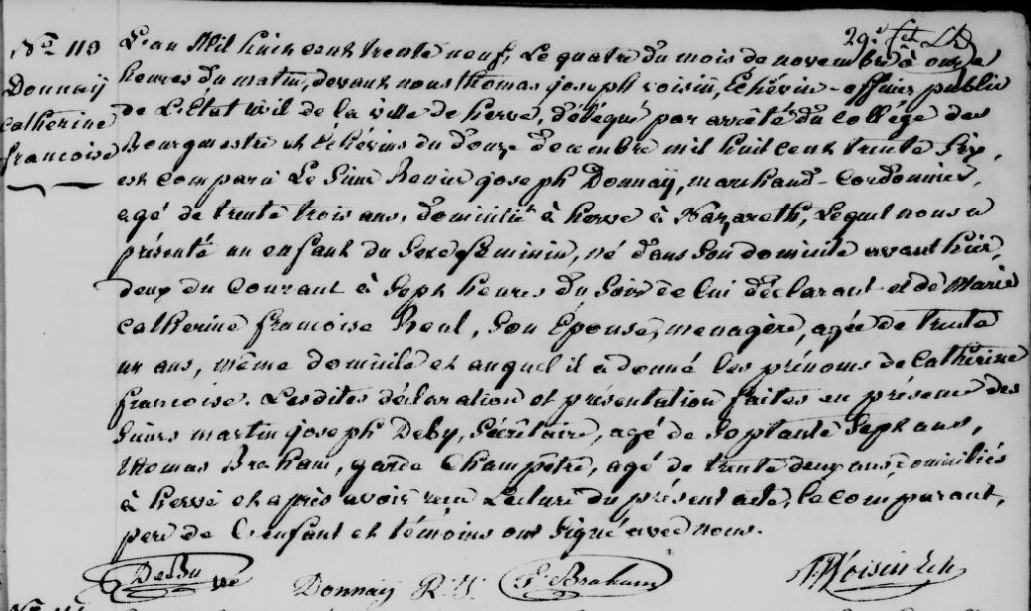 No 119
Donnaÿ
Catherine
françoise
L'an Mil huit cent trente neuf, Le quatre du mois de novembre à onze
heures du matin, devant nous thomas joseph voisin, Echevin - officier public
de L'État civil de la ville de herve, délégué par arrêté du collége des
Bourgmestre et Echévins du douze decembre mil huit cent trente six,
est comparu Le Sieur Renier joseph Donnaÿ, marchand - Cordonnier,
agé de trente trois ans, domicilié à herve à Nazareth, Lequel nous a
présenté un enfant du Sexe feminin, né dans Son domicile avant hier,
deux du Courant à Sept heures du Soir de lui déclarant et de Marie
Catherine françoise Renl, Son Epouse, menagère, agée de trente
un ans, même domicile et auquel il a donné les prénoms de Catherine
françoise. Lesdites déclaration et présentation faites en présence des
Sieurs martin joseph Deby, Sécrétaire, agé de Soptante Sept ans,
thomas Braham, garde Champêtre, agé de trente deux ans, domiciliés
à herve et après avoir reçu Lecture du présent acte, le comparant,
pere de L'enfant et témoins ont Signé avec nous.
Donnay R. J. Braham Voisin Ech